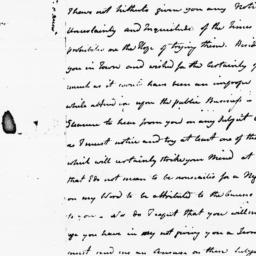 I have not hitherto given you any Noti
Uncertainty and Inquietude of the Times
probabilities on the Hope of trying them.
you in Town and wished for the Certainty of
much as it would have been an improper
while attend upon the public Business
Pleasure to hear from you on any Subject
as I must notice and try at least one of th
which will certainly strike your Mind at
that I do not mean to be
on my Word to be attributed to the Cause
to you. do I expect that you will
you have in my not giving you a
must send me an Answer on these Subje